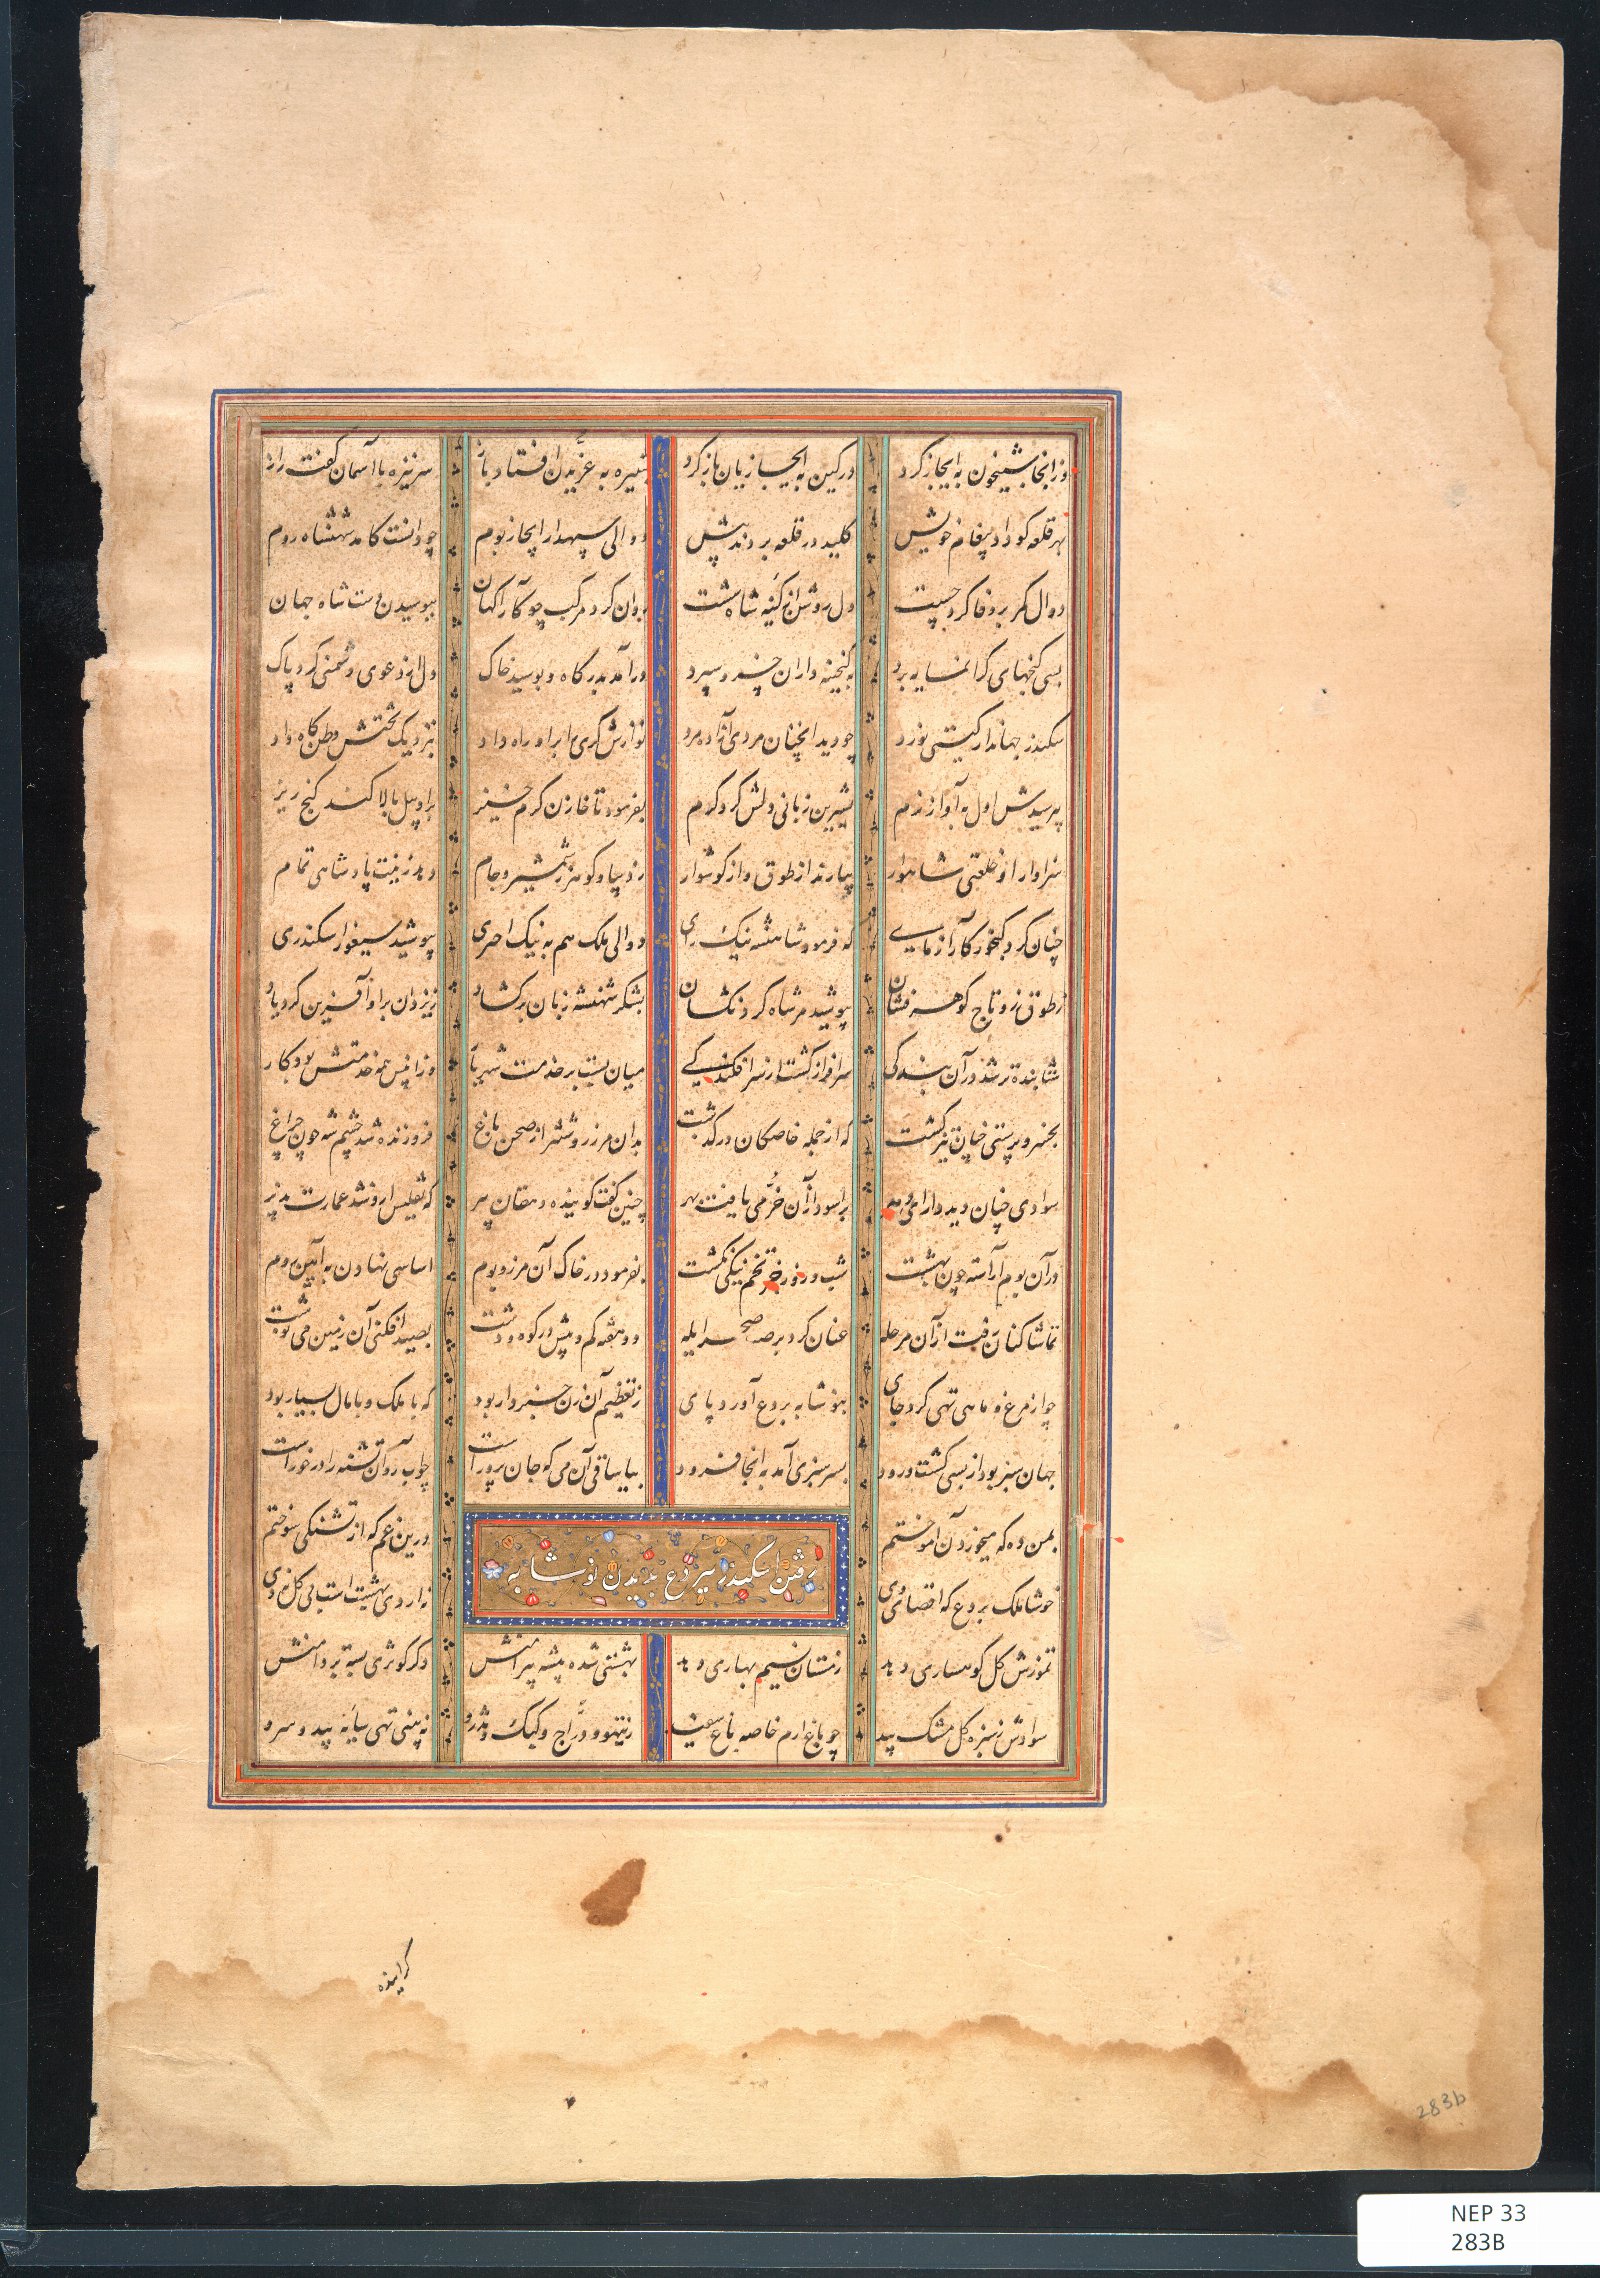 وز انجا شبیخون به ابخاز کرد در کین به ابخازیان باز کرد تبیره به غریدن افتاد باز سر نیزه با آسمان گفت راز
بهر قلعه کو داد پیغام خویش کلید در قلعه بردند پیش دوالی سپهدار ابخاز بوم چو دانست کامد شهنشاه روم
دوال کمر بر وفا کرد چست دل روشن از کینه شاه شست روان کرد مرکب چو کارآگهان ببوسیدن دست شاه جهان
بسی گنجهای گرانمایه برد به گنجینه داران خسرو سپرد درآمد بدرگاه و بوسید خاک دل از دعوی دشمنی کرد پاک
سکندر جهاندار گیتی نورد چو دید انچنان مردی آزاده مرد نوازش گری را براو راه داد بنزدیک تختش وطن گاه داد
بپرسیدش اول به آواز نرم بشیرین زبانی دلش کرد گرم بفرمود تا خازن گرم خیز براو پیل بالا کند گنج ریز
سزاوار او خلعتی شاهوار بیارند از طوق و از گوشوار ز دیبا و گوهر ز شمشیر و جام دهد زینت پادشاهی تمام
چنان کرد گنجور کار آزمای که فرمود شاهنشه نیک رای دوالی ملک هم به نیک اختری بپوشید سیفور اسکندری
ز طوق زر و تاج گوهر فشان بپوشید مر شاه گردنکشان بشکر شهنشه زبان برگشاد ز یزدان براو آفرین کرد یاد
شتابنده تر شد در آن بندگی سرافراز گشت از سرافکندگی میان بست بر خدمت شهریار وزان پس همه خدمتش بود کار
بخسرو پرستی چنان تیز گشت که از جمله خاصگان درگذشت بدان مرز روشنتر از صحن باغ فروزنده شد چشم شه چون چراغ
سوادی چنان دید دارای دهر براسود ازآن خرمی یافت بهر چنین گفت گوینده دهقان پیر که تفلیس ازو شد عمارت پذیر
درآن بوم آراسته چون بهشت شب و روز جز تخم نیکی نکشت بفرمود در خاک آن مرز و بوم اساسی نهادن به آیین روم
تماشا کنان رفت از آن مرحله عنان کرد برصید صحرا یله دو هفته کم و بیش در کوه و دشت بصید افکنی آن زمین می نوشت
چو از مرغ و ماهی تهی کرد جای بنوشابه بردع آورد پای ز تعظیم آن زن خبردار بود که با ملک و با مال بسیار بود
جهان سبز بود از بسی کشت و رود بسرسبزی آمد به انجا فرود بیا ساقی آن می که جان پرور است چو آب روان تشنه را درخور است
بمن ده که میخوردن آموختم درین غم که از تشنگی سوختم
رفتن اسکندر ببردع بدیدن نوشابه
خوشا ملک بردع که اقصای وی نه اردی بهشت است بی گل نه دی
تموزش گل کوهساری دهد زمستان نسیم بهاری دهد بهشتی شده بیشه پیرامنش دگر کوثری بسته بر دامنش
سوادش ز سبزه گل مشک بید چو باغ ارم خاصه باغ سفید ز تیهو و دراج و کبک و تذرو نه بینی تهی سایه بید و سرو
گراینده
283b
NEP 33
283B